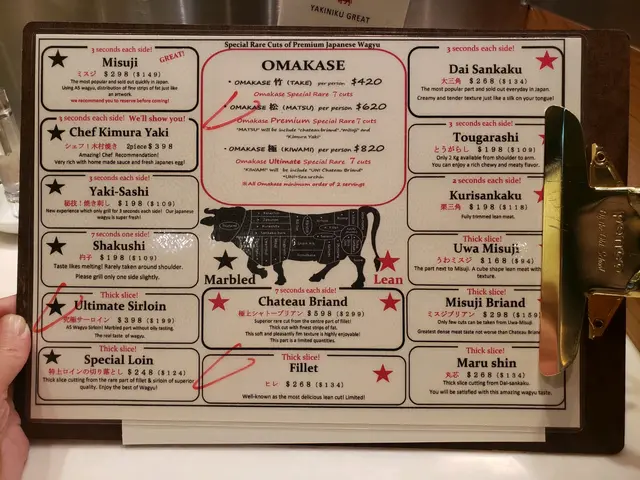 YAKINIKU GREAT
Special Rare Cuts of Premium Japanese Wagyu
3 seconds each side!
Misuji
GREAT!
ミスジ $298 ($149)
The most popular and sold out quickly in Japan.
Using A5 wagyu, distribution of fine strips of fat just like
an artwork.
we recommend you to reserve before coming!
3 seconds each side! We'll show you!
Chef Kimura Yaki
シェフ!木村焼き 2piece $398
Amazing! Chef Recommendation!
Very rich with home made sauce and fresh Japanes egg!
3 seconds each side!
Yaki-Sashi
秘技!焼き刺し $198 ($109)
New experience which only grill for 3 seconds each side! Our Japanese
wagyu is super fresh!
7 seconds one side!
Shakushi
杓子 $198 ($109)
Taste likes melting! Rarely taken around shoulder.
Please grill only one side slightly.
Thick slice!
Ultimate Sirloin
究極サーロイン $398 ($199)
A5 Wagyu Sirloin! Marbled part without oily tasting.
The real taste of wagyu.
Thick slice!
Special Loin
特上ロインの切り落とし $248 ($124)
Thick slice cutting from the rare part of fillet & sirloin of superior
quality. Enjoy the best of Wagyu!
OMAKASE
• OMAKASE 竹 (TAKE) per person $420
Omakase Special Rare 7 cuts
• OMAKASE 松 (MATSU) per person $620
Omakase Premium Special Rare 7 cuts
"MATSU" will be include "chateau briand","misuji" and
"Kimura Yaki"
• OMAKASE 極 (KIWAMI) per person $820
Omakase Ultimate Special Rare 7 cuts
"KIWAMI" will be include "UNI Chateau Briand"
※All Omakase minimum order of 2 servings
Marbled
Lean
7 seconds each side!
Chateau Briand
極上シャトーブリアン $598 ($299)
Superior rare cut from the centre part of fillet!
Thick cut with finest strips of fat.
This soft and pleasantly fim texture is highly enjoyable!
This part is a limited quantities.
Thick slice!
Fillet
ヒレ $268 ($134)
Well-known as the most delicious lean cut! Limited!
3 seconds each side!
Dai Sankaku
大三角 $268 ($134)
The most popular part and sold out everyday in Japan.
Creamy and tender texture just like a silk on your tongue!
3 seconds each side!
Tougarashi
とうがらし $198 ($109)
Only 2 Kg available from shoulder to arm.
You can enjoy a rich cheewy and meaty flavor.
2 seconds each side!
Kurisankaku
栗三角 $198 ($118)
Fully trimmed lean meat.
Thick slice!
Uwa Misuji
うわミスジ $168 ($94)
The part next to Misuji. A cube shape lean meat with
texture.
Thick slice!
Misuji Briand
ミスジブリアン $398 ($199)
Only few cuts can be taken from Uwa-Misuji.
Greatest dense meat taste not worse than Chateau Briand
Thick slice!
Maru shin
丸芯 $268 ($134)
Thick slice cutting from Dai-sankaku.
You will be satisfied with this amazing wagyu taste.